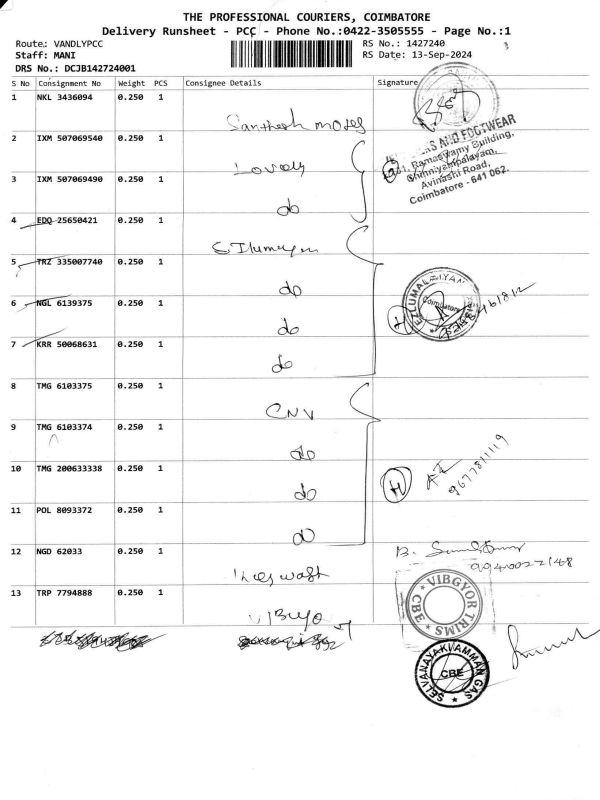 THE PROFESSIONAL COURIERS, COIMBATORE
Delivery Runsheet - PCC - Phone No.:0422-3505555 - Page No.:1
Route: VANDLYPCC RS No.: 1427240
Staff: MANI RS Date: 13-Sep-2024
DRS No.: DCJB142724001
S No Consignment No Weight PCS Consignee Details Signature
1 NKL 3436094 0.250 1 Santhosh
2 IXM 507069540 0.250 1 Lovely
AND FOOTWEAR
Ramaswamy Building,
Chinniyampalayam,
Avinashi Road,
Coimbatore - 641 062.
3 IXM 507069490 0.250 1 do
4 EDQ 25650421 0.250 1
5 TRZ 335007740 0.250 1 do
6 NGL 6139375 0.250 1 do
Coimbatore
7 KRR 50068631 0.250 1 do
8 TMG 6103375 0.250 1 CNV
9 TMG 6103374 0.250 1 do
10 TMG 200633338 0.250 1 do
9677811119
11 POL 8093372 0.250 1 do
12 NGD 62033 0.250 1
B.
9940022148
13 TRP 7794888 0.250 1
VIBGYOR TRIMS
CBE
SELVANAYAKIAMMAN GAS
CBE